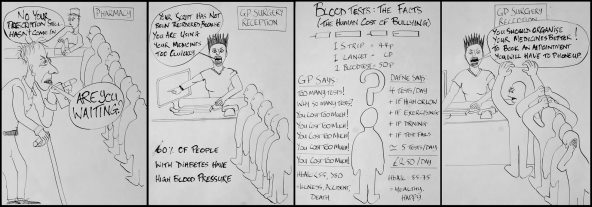 NO YOUR
PRESCRIPTION STILL
HASN'T COME IN
PHARMACY
ARE YOU
WAITING?
YOUR SCRIPT HAS NOT
BEEN REORDERED BECAUSE
YOU ARE USING
YOUR MEDICINES
TOO QUICKLY
GP SURGERY
RECEPTION
60% OF PEOPLE
WITH DIABETES HAVE
HIGH BLOOD PRESSURE
BLOOD TESTS: THE FACTS
(THE HUMAN COST OF BULLYING)
1 STRIP = 44P
1 LANCET = 6P
1 BLOOD TEST = 50P
GP SAYS
TOO MANY TESTS!
WHY SO MANY TESTS?
YOU COST TOO MUCH!
YOU COST TOO MUCH!
YOU COST TOO MUCH!
YOU COST TOO MUCH!
YOU COST TOO MUCH!
HBA1C
= ILLNESS, ACCIDENT,
DEATH
?
DAFNE SAYS
4 TESTS/DAY
+ IF HIGH OR LOW
+ IF EXERCISING
+ IF DRIVING
+ IF TEST FAILS
≈ 5 TESTS/DAY
£2.50/DAY
HBA1C
= HEALTHY,
HAPPY
GP SURGERY
RECEPTION
YOU SHOULD ORGANISE
YOUR MEDICINES BETTER!
TO BOOK AN APPOINTMENT
YOU WILL HAVE TO PHONE UP.